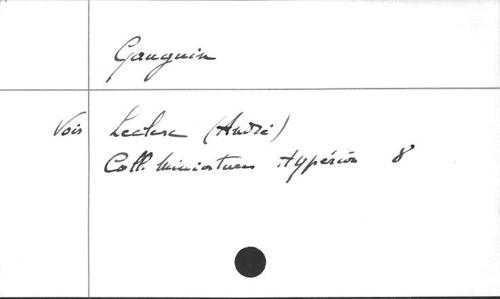 Gauguin
Vois Leclerc (André)
Coll. Miniatures Hypérion 8